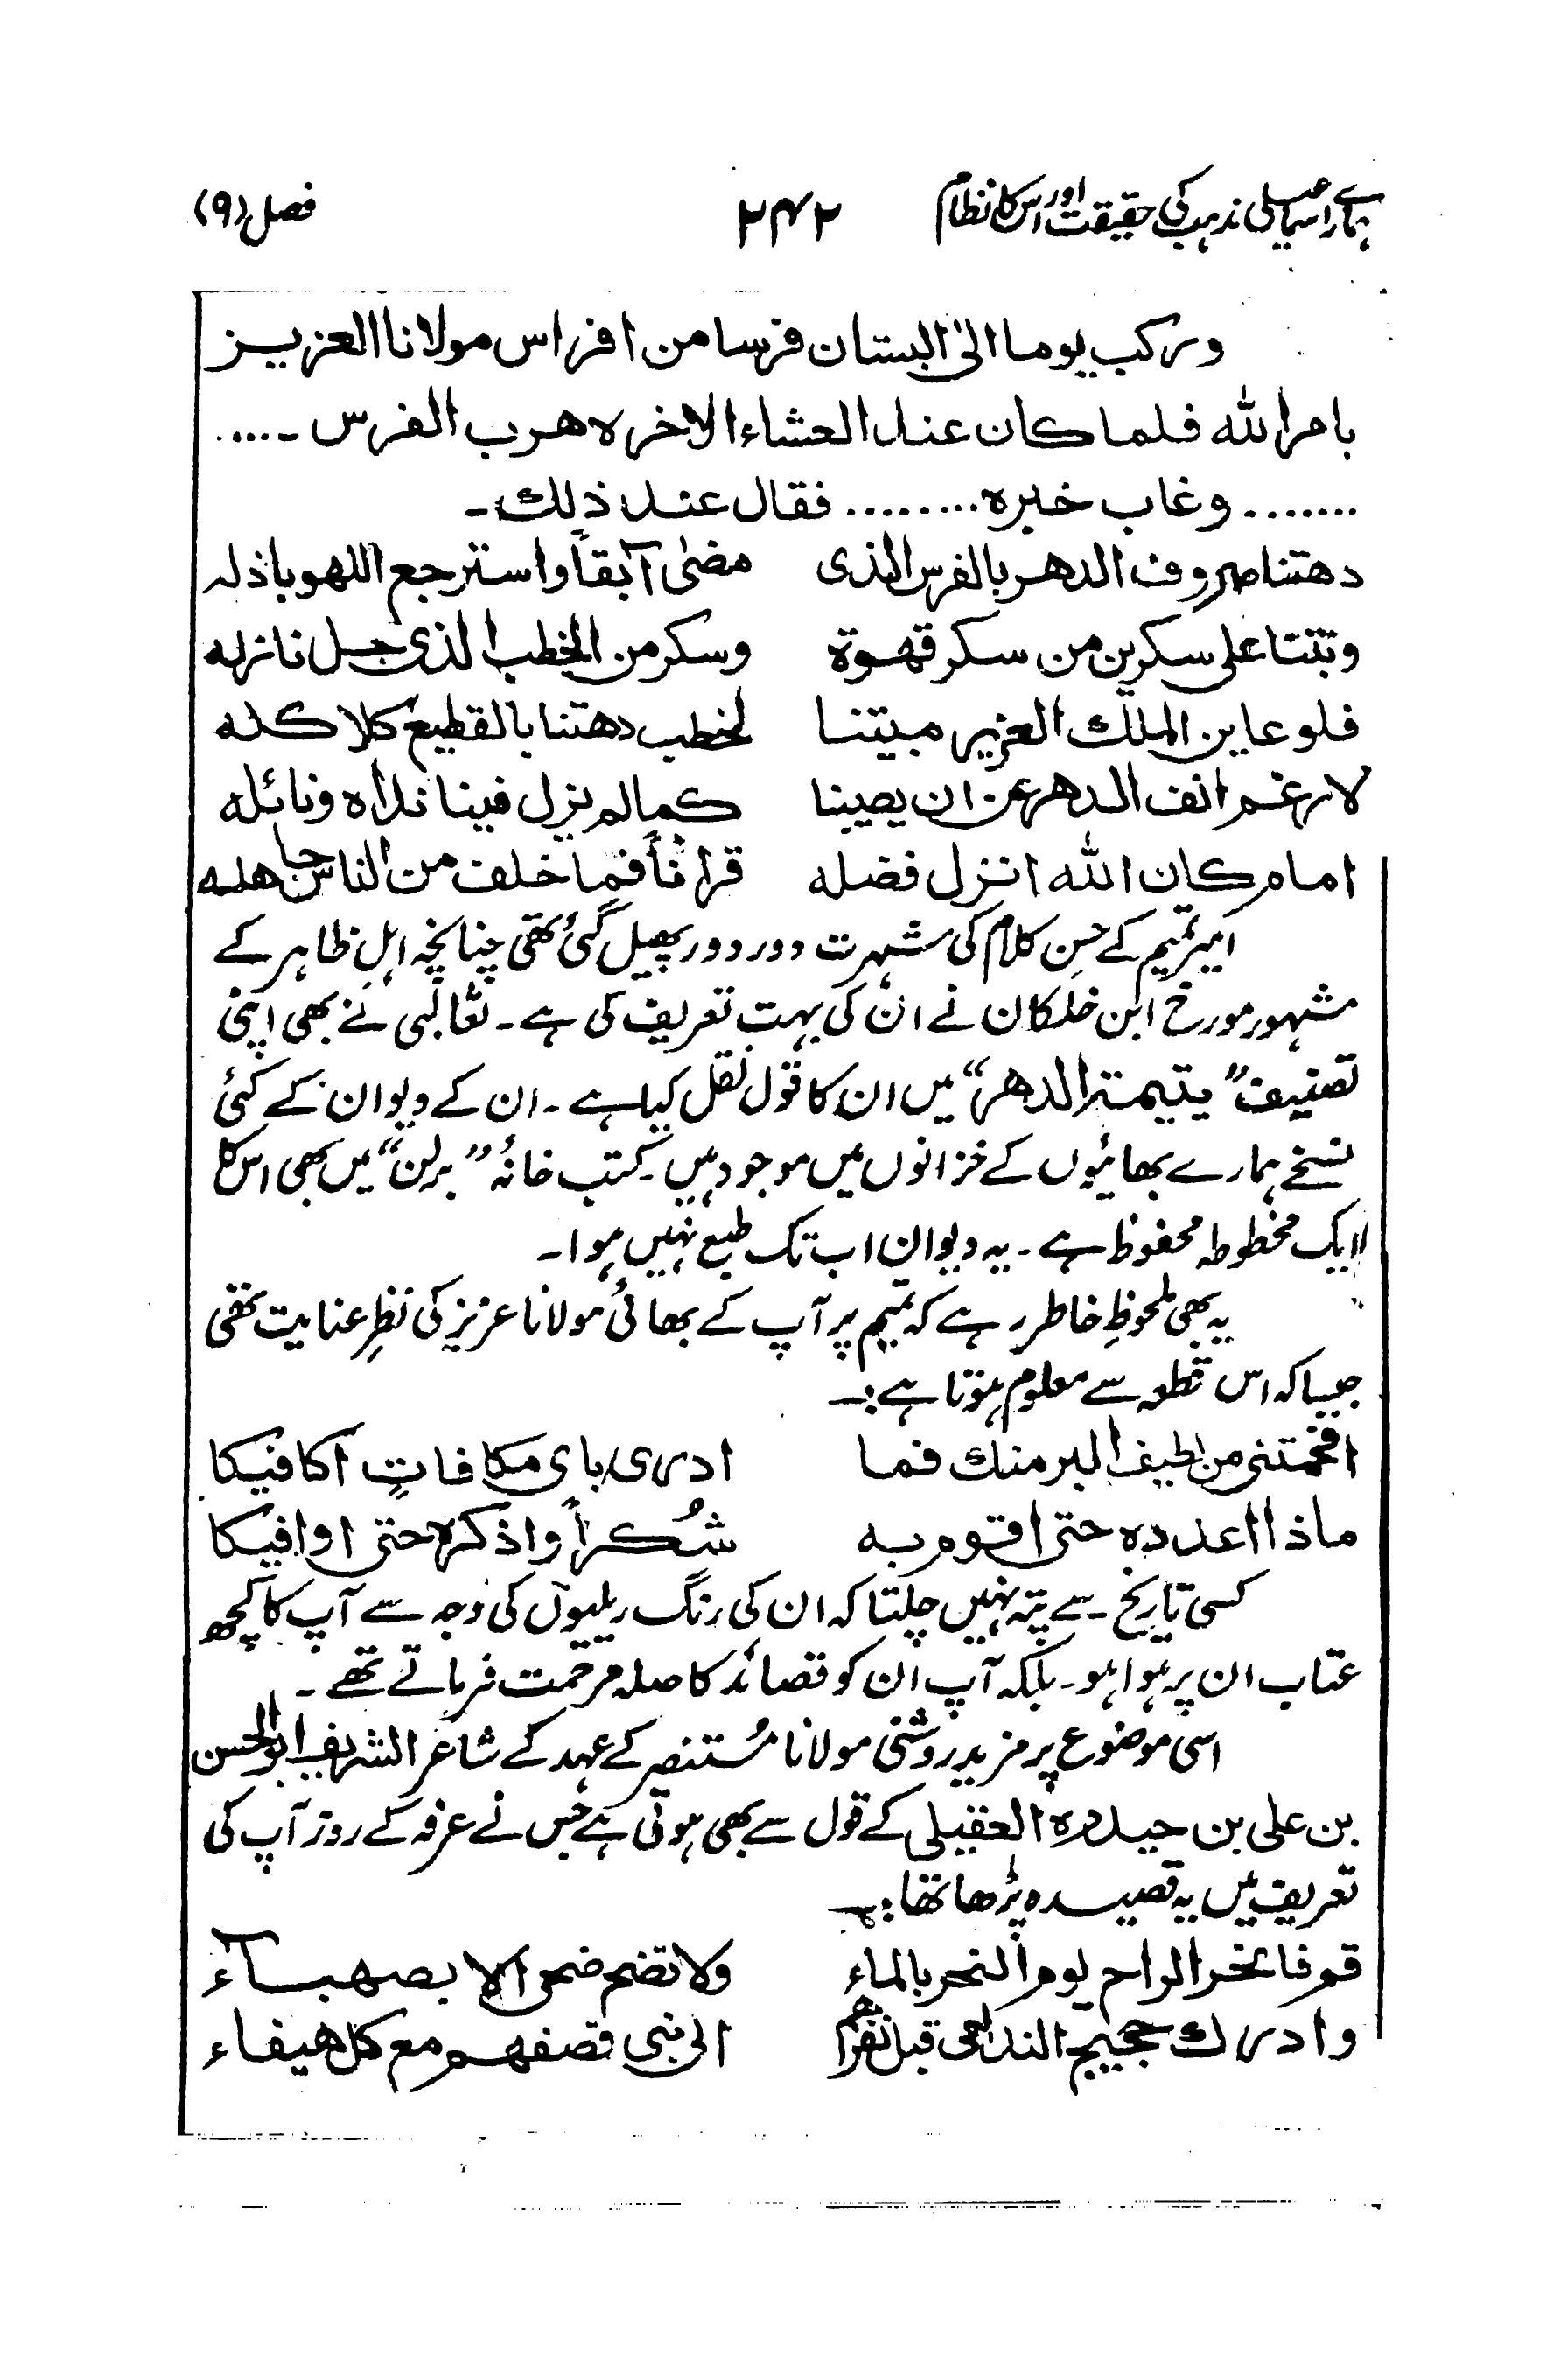 ہمارے اسماعیلی مذہب کی حقیقت اور اس کا نظام ۲۴۲ فصل (۹)
وركب يوما الىٰ البستان فرسا من افراس مولانا العزيز
بامر الله فلما كان عند العشاء الاخره هرب الفرس ـ .....
........ وغاب خبره ......... فقال عند ذلك ـ
دهتنا صروف الدهر بالفرس الذى مضىٰ آبقاً واسترجع اللهو باذله
وبتنا على سكرين من سكر قهوة وسكر من الخطب الذى جل نازله
فلو عاين الملك العزيز مبيتنا لخطب دهتنا بالقطيع كلاكله
لارغم انف الدهر عن ان يصيبنا كما لم يزل فينا نداه ونائله
امام كان الله انزل فضله قراناً فما خلف من الناس جاهله
امیر تمیم کے حسنِ کلام کی شہرت دور دور پھیل گئی تھی چنانچہ اہلِ ظاہر کے
مشہور مورخ ابن خلکان نے ان کی بہت تعریف کی ہے۔ ثعالبی نے بھی اپنی
تصنیف ”یتیمۃ الدھر“ میں ان کا قول نقل کیا ہے۔ ان کے دیوان کے کئی
نسخے ہمارے بھائیوں کے خزانوں میں موجود ہیں۔ کتب خانۂ ”برلن“ میں بھی اس کا
ایک مخطوطہ محفوظ ہے۔ یہ دیوان اب تک طبع نہیں ہوا۔
یہ بھی ملحوظِ خاطر رہے کہ تمیم پر آپ کے بھائی مولانا عزیز کی نظرِ عنایت تھی
جیسا کہ اس قطعہ سے معلوم ہوتا ہے:۔
افحمتنى من لطيف البر منك فما ادرى باى مكافاتٍ اكافيكا
ماذا اعدده حتى اقوم به شُكراً واذكره حتى اوافيكا
کسی تاریخ سے پتہ نہیں چلتا کہ ان کی رنگ رلیوں کی وجہ سے آپ کا کچھ
عتاب ان پر ہوا ہو۔ بلکہ آپ ان کو قصائد کا صلہ مرحمت فرماتے تھے۔
اسی موضوع پر مزید روشنی مولانا مُستنصر کے عہد کے شاعر الشریف ابو الحسن
بن علی بن حیدرہ العقیلی کے قول سے بھی ہوتی ہے جس نے عرفہ کے روز آپ کی
تعریف میں یہ قصیدہ پڑھا تھا:۔
قم فانحر الراح يوم النحر بالماء ولا تضح ضحى الا بصهباء
وادرك حجيج الندامى قبل نفرهم الى منى قصفهم مع كل هيفاء